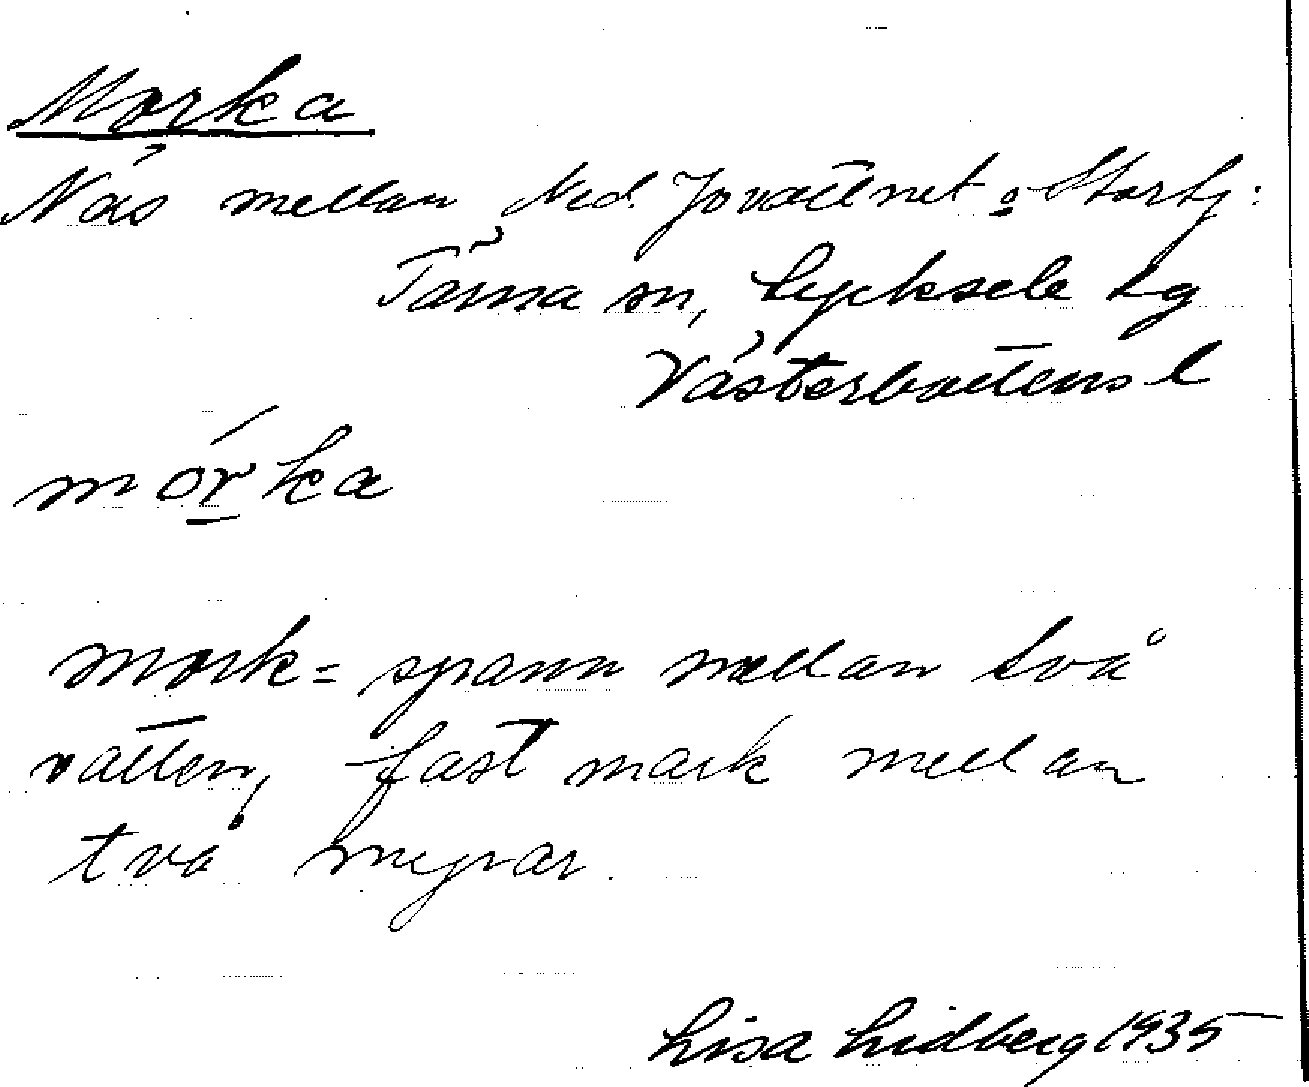 Morka
Näs mellan Ned. Jovattnet o Stortj:
Tärna sn, Lycksele lg
Västerbottens l
mórka
mork = spann mellan två
vatten, fast mark mellan
två myrar.
Lisa Lidberg 1935